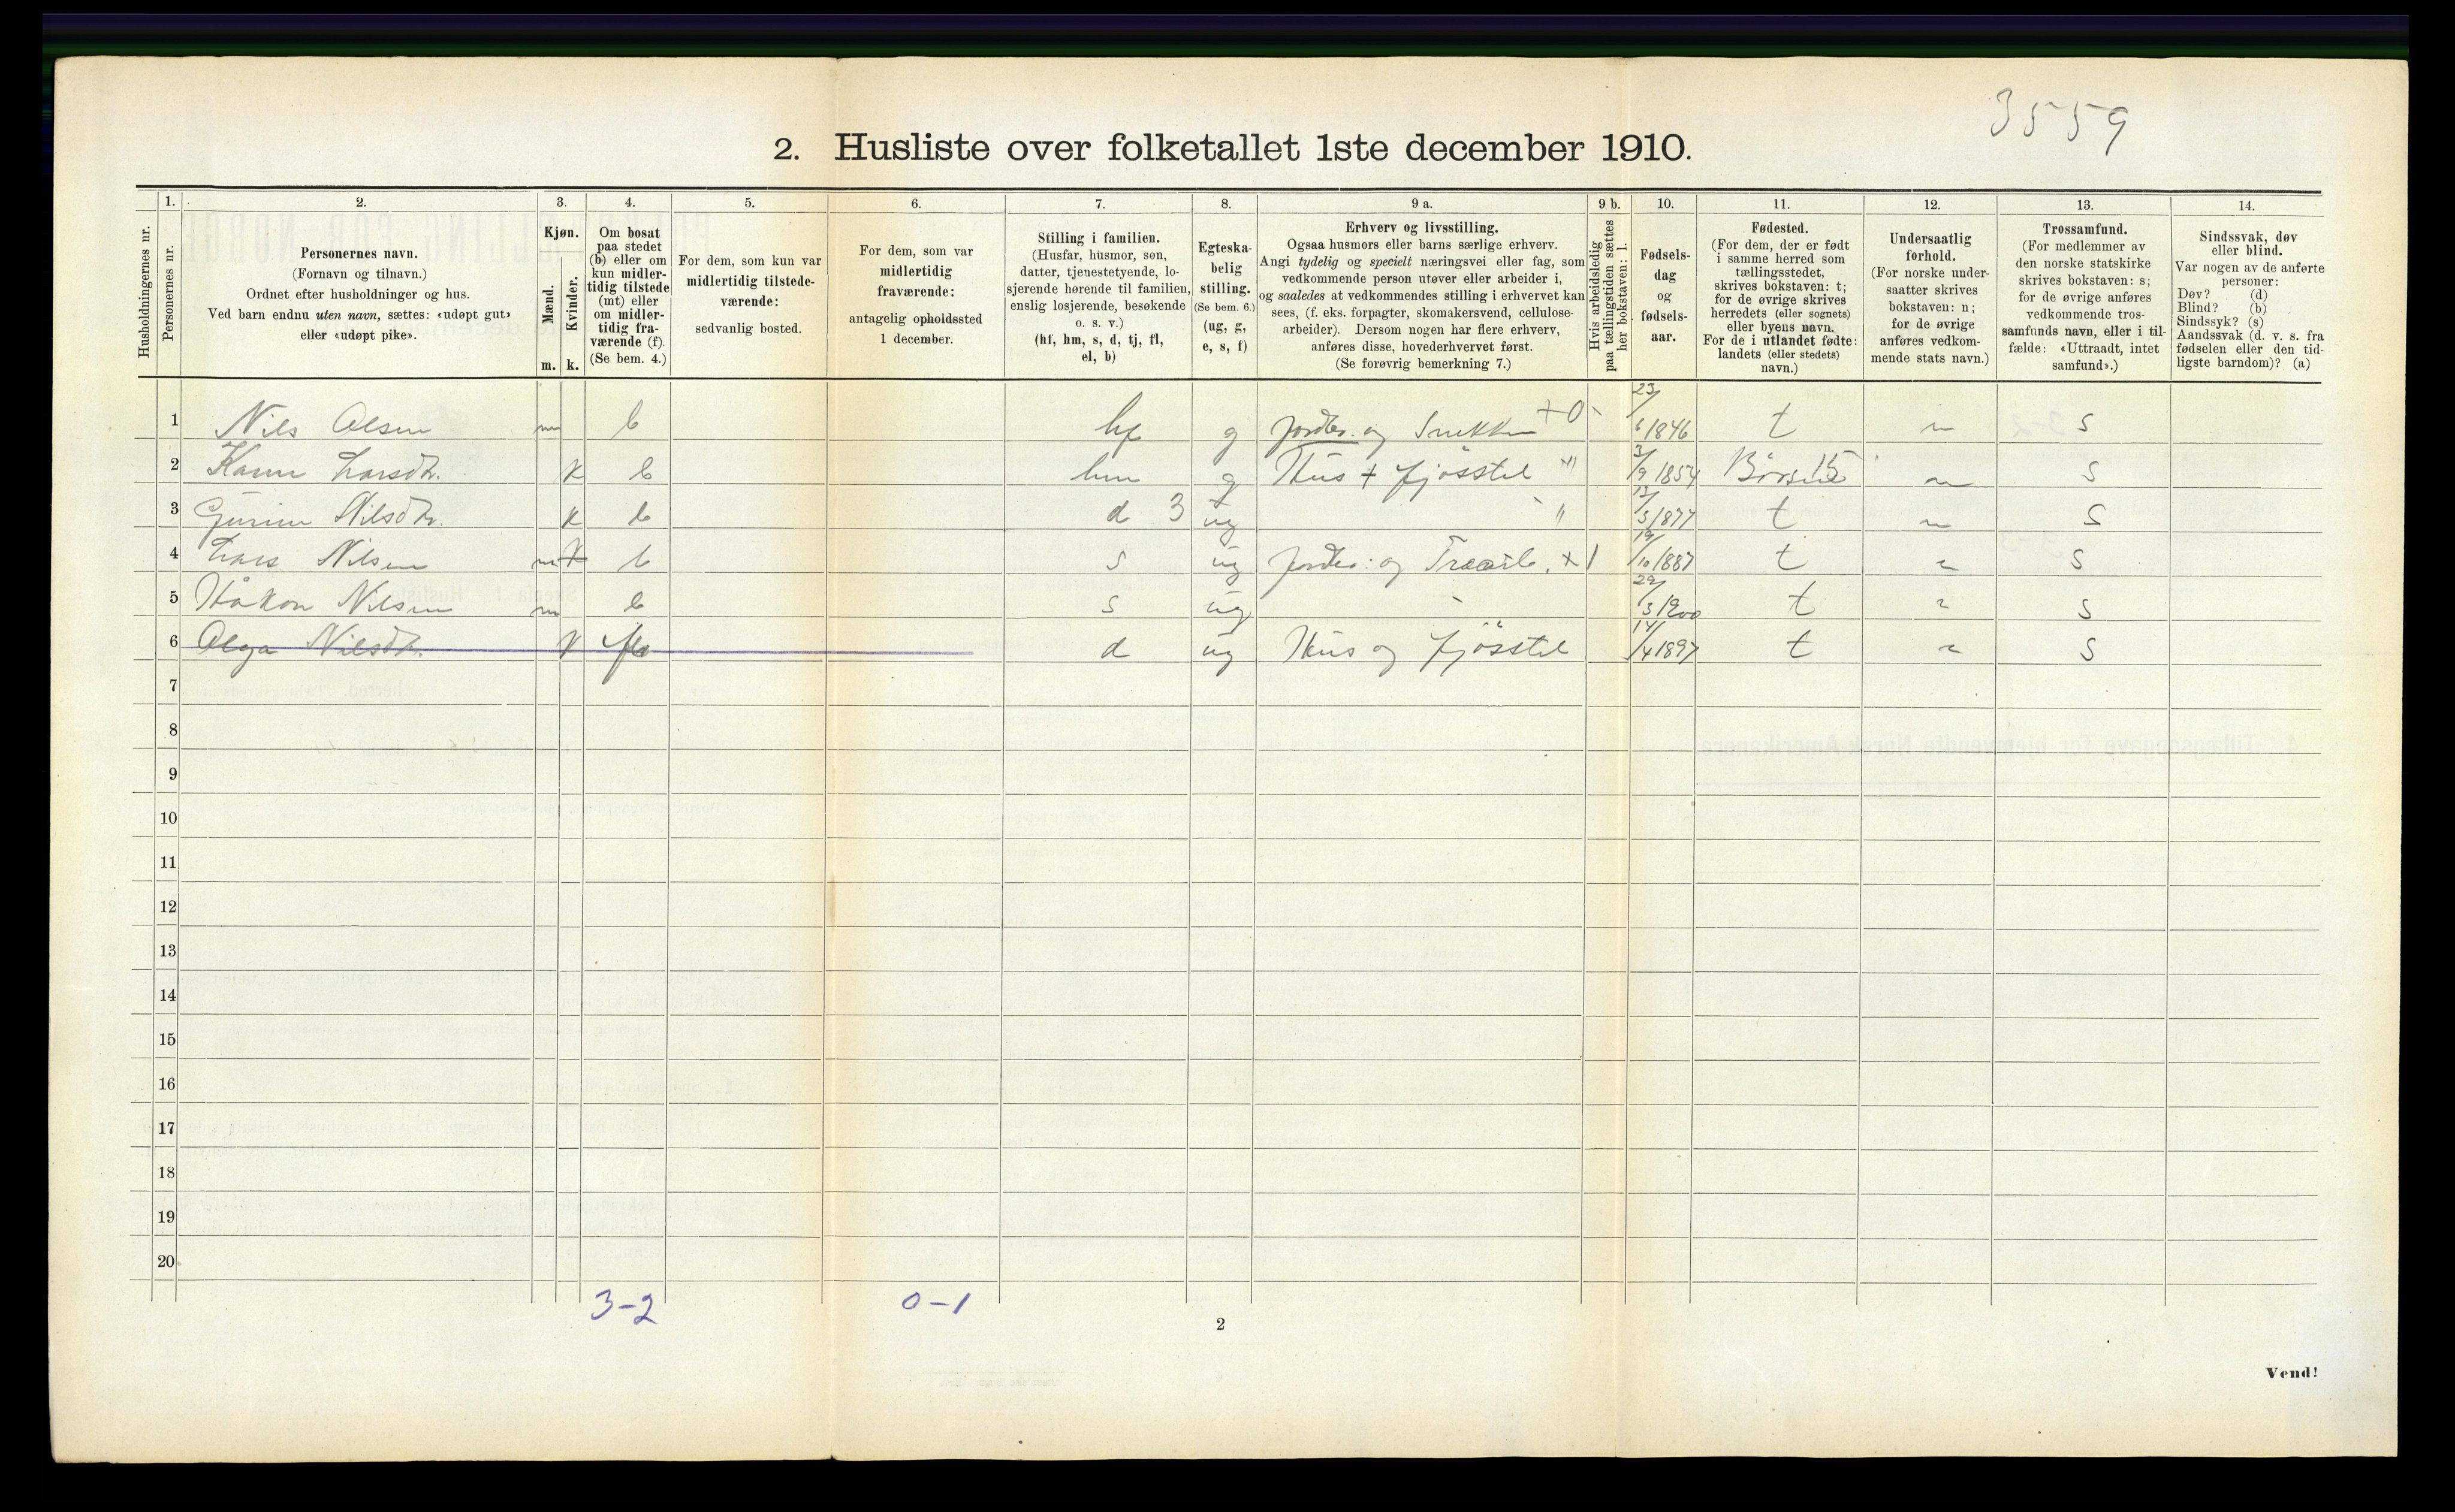 3559
2. Husliste over folketallet 1ste december 1910.
Husholdningernes nr.
1.
Personernes nr.
2.
Personernes navn.
(Fornavn og tilnavn.)
Ordnet efter husholdninger og hus.
Ved barn endnu uten navn, sættes: «udøpt gut»
eller «udøpt pike».
3.
Kjøn.
Mænd.
Kvinder.
m. k.
4.
Om bosat
paa stedet
(b) eller om
kun midler-
tidig tilstede
(mt) eller
om midler-
tidig fra-
værende (f).
(Se bem. 4.)
5.
For dem, som kun var
midlertidig tilstede-
værende:
sedvanlig bosted.
6.
For dem, som var
midlertidig
fraværende:
antagelig opholdssted
1 december.
7.
Stilling i familien.
(Husfar, husmor, søn,
datter, tjenestetyende, lo-
sjerende hørende til familien,
enslig losjerende, besøkende
o. s. v.)
(hf, hm, s, d, tj, fl,
el, b)
8.
Egteska-
belig
stilling.
(Se bem. 6.)
(ug, g,
e, s, f)
9 a.
Erhverv og livsstilling.
Ogsaa husmors eller barns særlige erhverv.
Angi tydelig og specielt næringsvei eller fag, som
vedkommende person utøver eller arbeider i,
og saaledes at vedkommendes stilling i erhvervet kan
sees, (f. eks. forpagter, skomakersvend, cellulose-
arbeider). Dersom nogen har flere erhverv,
anføres disse, hovederhvervet først.
(Se forøvrig bemerkning 7.)
9 b.
Hvis arbeidsledig
paa tællingstiden sættes
her bokstaven: l.
10.
Fødsels-
dag
og
fødsels-
aar.
11.
Fødested.
(For dem, der er født
i samme herred som
tællingsstedet,
skrives bokstaven: t;
for de øvrige skrives
herredets (eller sognets)
eller byens navn.
For de i utlandet fødte:
landets (eller stedets)
navn.)
12.
Undersaatlig
forhold.
(For norske under-
saatter skrives
bokstaven: n;
for de øvrige
anføres vedkom-
mende stats navn.)
13.
Trossamfund.
(For medlemmer av
den norske statskirke
skrives bokstaven: s;
for de øvrige anføres
vedkommende tros-
samfunds navn, eller i til-
fælde: «Uttraadt, intet
samfund».)
14.
Sindssvak, døv
eller blind.
Var nogen av de anførte
personer:
Døv? (d)
Blind? (b)
Sindssyk? (s)
Aandssvak (d. v. s. fra
fødselen eller den tid-
ligste barndom)? (a)
1 Nils Olsen m b hf g Jordbr. og Snekker +0 23/6 1846 t n s
2 Karen Larsdtr. k b hm g Hus + fjøsstel " 3/9 1854 15 n s
3 Nilsdtr. k b d 3 ug " 13/3 1877 t n s
4 Lars Nilsen m k b s ug Jordbr: og Træarb. x 1 19/10 1887 t n s
5 Håkon Nilsen m b s ug 29/3 1900 t n s
6 Olga Nilsdtr. k d ug Hus og fjøsstel 14/4 1897 t n s
7
8
9
10
11
12
13
14
15
16
17
18
19
20
3-2 0-1
2
Vend!